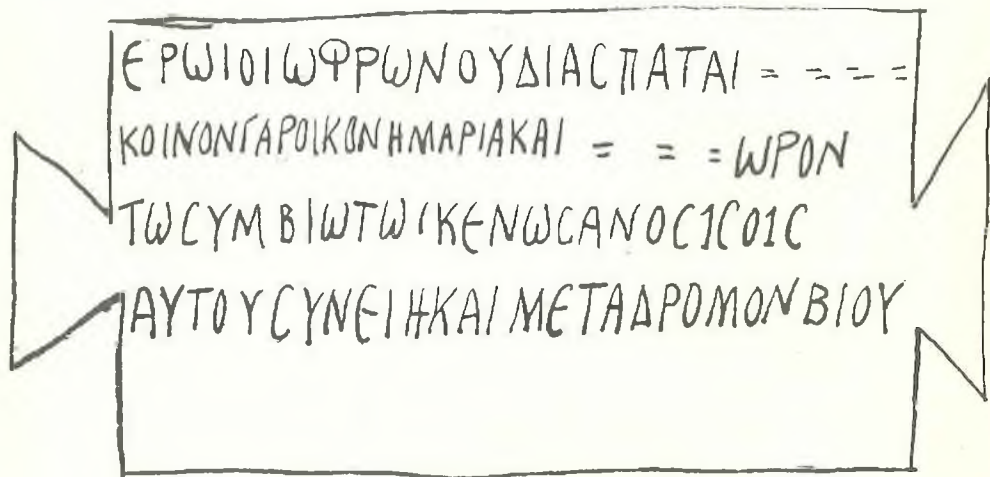 ЄΡѠΙΟΙѠΦΡѠΝΟΥΔΙΑϹΠΑΤΑΙ = = = =
ΚΟΙΝΟΝΓΑΡΟΙΚΟΝΗΜΑΡΙΑΚΑΙ = = = ѠΡΟΝ
ΤѠϹΥΜΒΙѠΤѠΙΚЄΝѠϹΑΝΟϹ1ϹΟ1Ϲ
ΑΥΤΟΥϹΥΝЄΙΗΚΑΙΜЄΤΑΔΡΟΜΟΝΒΙΟΥ